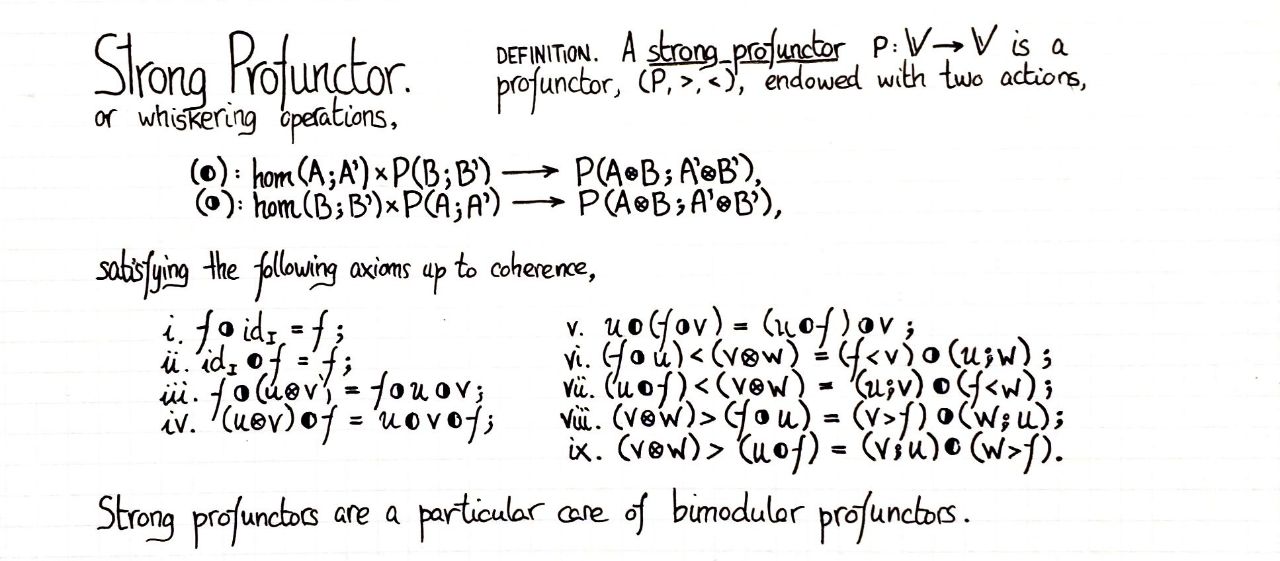 Strong Profunctor.
DEFINITION. A strong profunctor P: 𝕍→𝕍 is a
profunctor, (P, >, <), endowed with two actions,
or whiskering operations,
(◐): hom(A;A')×P(B;B') ⟶ P(A⊗B; A'⊗B'),
(◑): hom(B;B')×P(A;A') ⟶ P(A⊗B; A'⊗B'),
satisfying the following axioms up to coherence,
i. f ◑ id_I = f;
ii. id_I ◐ f = f;
iii. f ◑ (u⊗v) = f ◑ u ◑ v;
iv. (u⊗v) ◐ f = u ◐ v ◐ f;
v. u ◐ (f ◑ v) = (u ◐ f) ◑ v;
vi. (f ◑ u) < (v⊗w) = (f<v) ◑ (u;w);
vii. (u ◐ f) < (v⊗w) = (u;v) ◐ (f<w);
viii. (v⊗w) > (f ◑ u) = (v>f) ◑ (w;u);
ix. (v⊗w) > (u ◐ f) = (v;u) ◐ (w>f).
Strong profunctors are a particular case of bimodular profunctors.